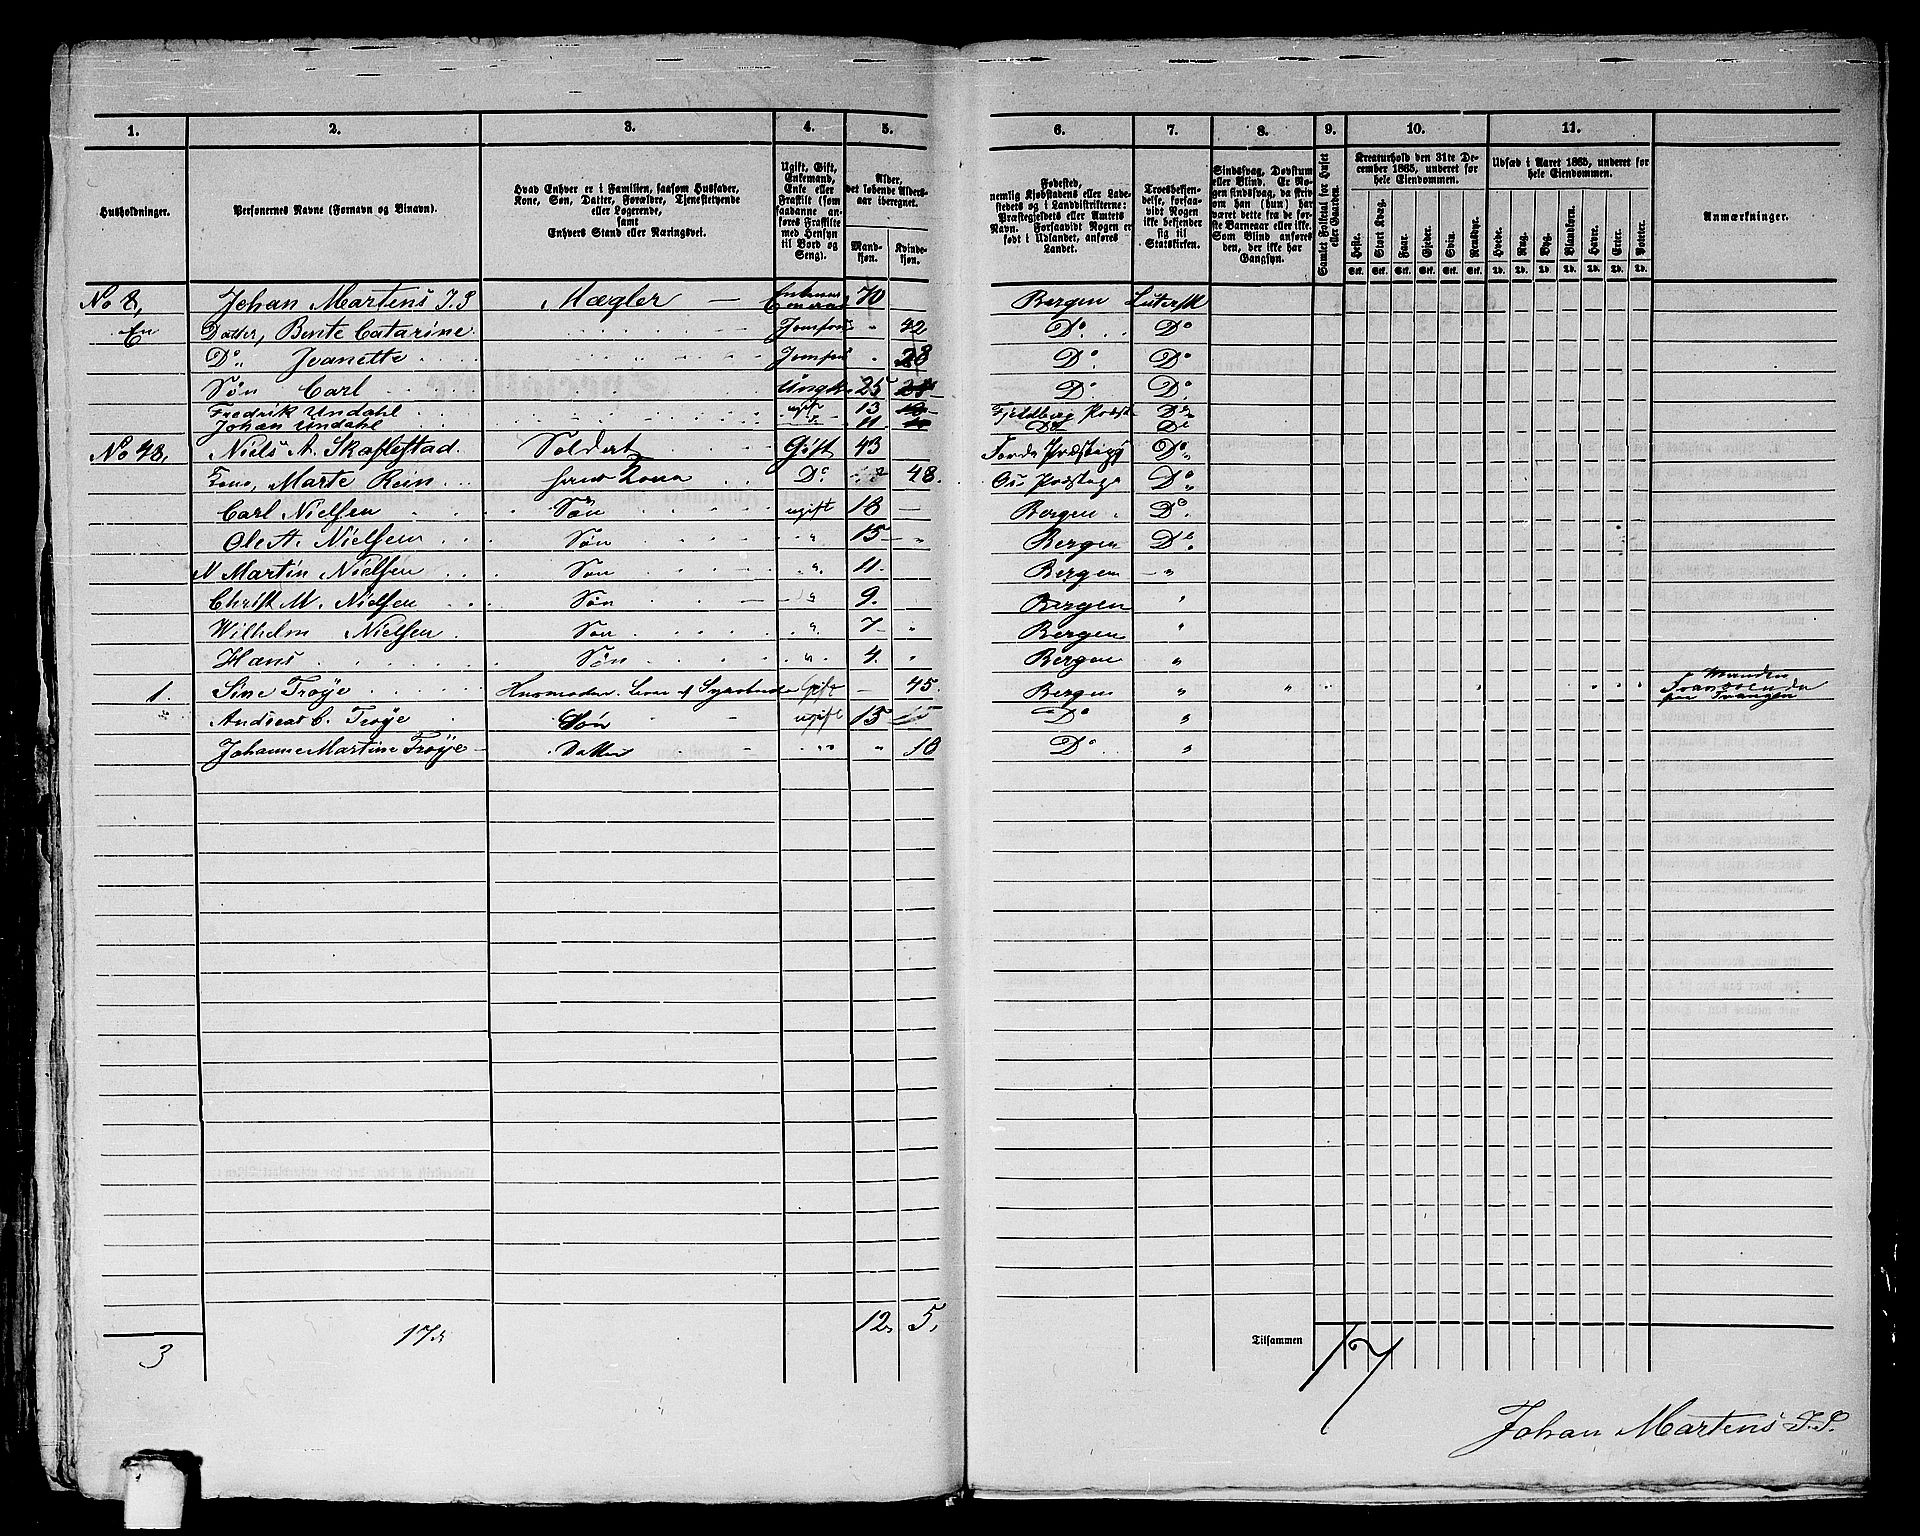 1. 2. 3. 4. 5. 6. 7. 8. 9. 10. 11.
Husholdninger.
Personernes Navne (Fornavn og Binavn).
Hvad Enhver er i Familien, saasom Husfader,
Kone, Søn, Datter, Forældre, Tjenestetyende
eller Logerende,
samt
Enhvers Stand eller Næringsvei.
Ugift, Gift,
Enkemand,
Enke eller
Fraskilt (som
saadanne an-
føres Fraskilte
med Hensyn
til Bord og
Seng).
Alder,
det løbende Alders-
aar iberegnet.
Mand-
kjøn.
Kvinde-
kjøn.
Fødested,
nemlig Kjøbstadens eller Lade-
stedets og i Landdistrikterne:
Præstegjeldets eller Amtets
Navn. Forsaavidt Nogen er
født i Udlandet, anføres
Landet.
Troesbekjen-
delse, forsaa-
vidt Nogen
ikke bekjender
sig til
Statskirken.
Sindssvag, Døvstum
eller Blind. Er No-
gen sindssvag, da skriv
om han (hun) har
været dette fra de før-
ste Barneaar eller ikke.
Som Blind anføres
den, der ikke har
Gangsyn.
Samlet Folketal for Huset
eller Gaarden.
Kreaturhold den 31te De-
cember 1865, underet for
hele Eiendommen.
Heste. Stort Kvæg. Faar. Gjeder. Svin. Rensdyr.
Stk. Stk. Stk. Stk. Stk. Stk.
Udsæd i Aaret 1865, underet for
hele Eiendommen.
Hvede. Rug. Byg. Blandkorn. Havre. Erter. Poteter.
Td. Td. Td. Td. Td. Td. Td.
Anmærkninger.
No 8, Johan Martens J.S Mægler 70 Bergen Lutersk
En Datter, Bente Catarine Jomfru 42 Do Do
Do Jeanette Jomfru 28 Do Do
Søn Carl Ungk. 25 Do Do
Fredrik Undahl ugift 13 Fjeldberg Præst Do
Johan Undahl 11 Do Do
No 48, Niels A. Skaflestad Soldat Gift 43 Præsteg. Do
Kone, Marte Rein hans Kone Do 48 Præsteg. Do
Carl Nielsen Søn ugift 18 Bergen Do
Ole A. Nielsen Søn " 15 " Bergen Do
N Martin Nielsen Søn " 11 Bergen "
Christ M. Nielsen Søn " 9. Bergen "
Wilhelm Nielsen Søn " 7 " Bergen "
Hans Søn " 4. " Bergen "
1. Sine Trøye Husmoder. Gift 45. Bergen " " Manden
Andreas C. Trøye Søn ugift 15 Do "
Johanne Martine Trøye Datter " " 10 Do "
3 17 12 5, Tilsammen 17
Johan Martens J.S.